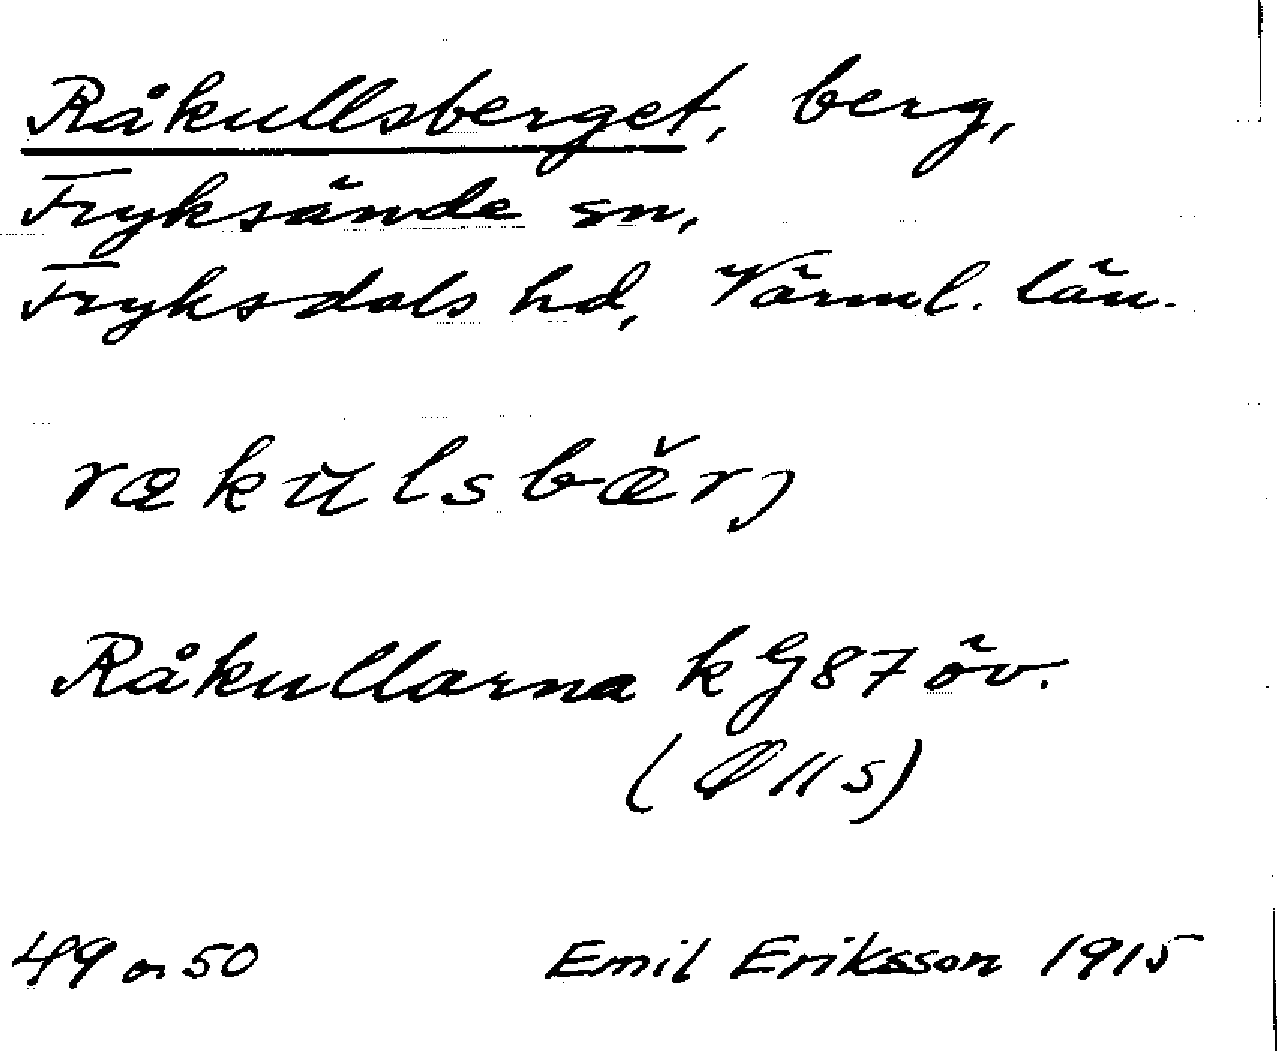 Råkullsberget, berg,
Fryksände sn,
Fryksdals hd, Värml. län.
rækulsbærj
Råkullarna k G 87 öv.
49 o 50 Emil Eriksson 1915